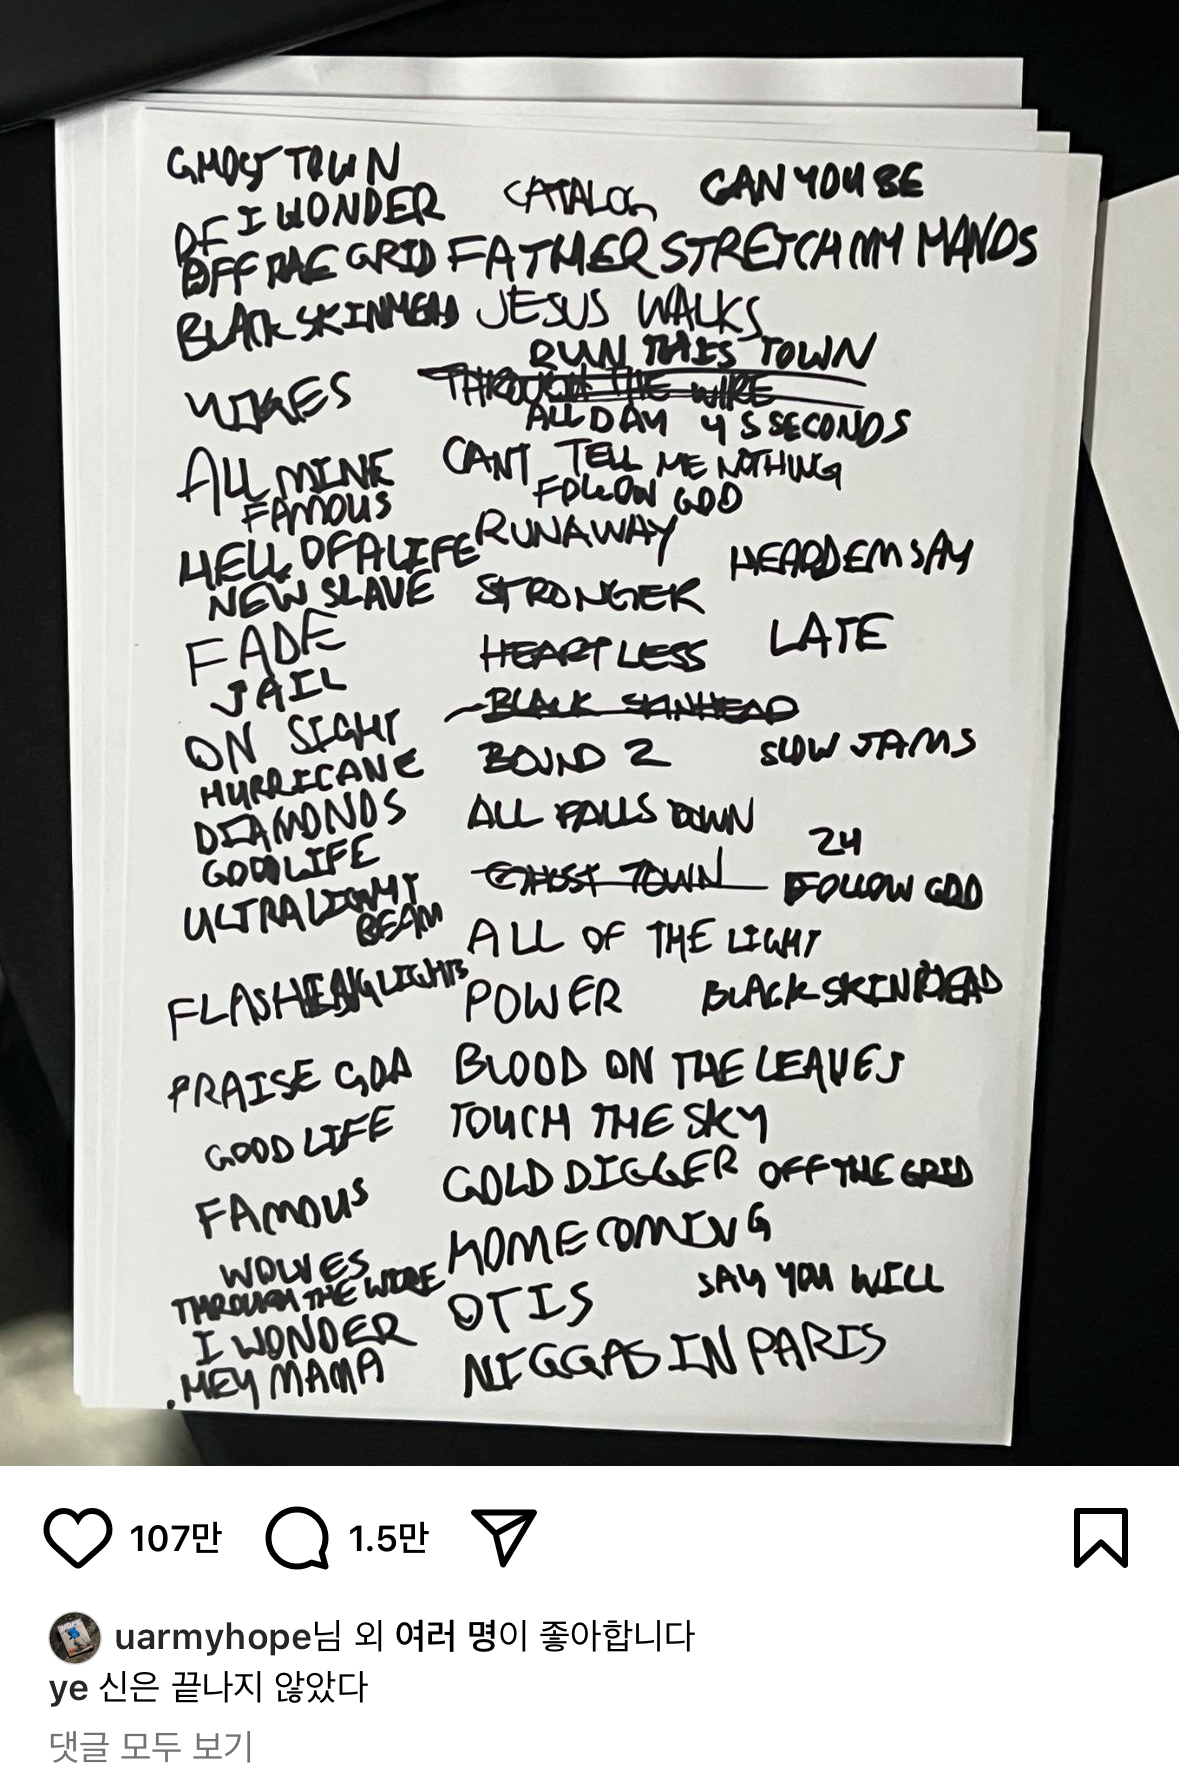 GHOST TOWN
DF I WONDER CATALOG CAN YOU BE
OFF THE GRID FATHER STRETCH MY HANDS
BLACK SKINHEAD JESUS WALKS
RUN THIS TOWN
YIKES THROUGH THE WIRE
ALL DAY 4 5 SECONDS
ALL MINE CANT TELL ME NOTHING
FAMOUS FOLLOW GOD
HELL OF A LIFE RUNAWAY HEARD EM SAY
NEW SLAVE STRONGER
FADE HEARTLESS LATE
JAIL BLACK SKINHEAD
ON SIGHT BOUND 2 SLOW JAMS
HURRICANE
DIAMONDS ALL FALLS DOWN
GOOD LIFE 24
ULTRALIGHT GHOST TOWN FOLLOW GOD
BEAM ALL OF THE LIGHT
FLASHING LIGHTS POWER BLACK SKINHEAD
PRAISE GOD BLOOD ON THE LEAVES
GOOD LIFE TOUCH THE SKY
FAMOUS GOLD DIGGER OFF THE GRID
WOLVES HOMECOMING
THROUGH THE WIRE OTIS SAY YOU WILL
I WONDER
HEY MAMA NIGGAS IN PARIS
107만 1.5만
uarmyhope님 외 여러 명이 좋아합니다
ye 신은 끝나지 않았다
댓글 모두 보기